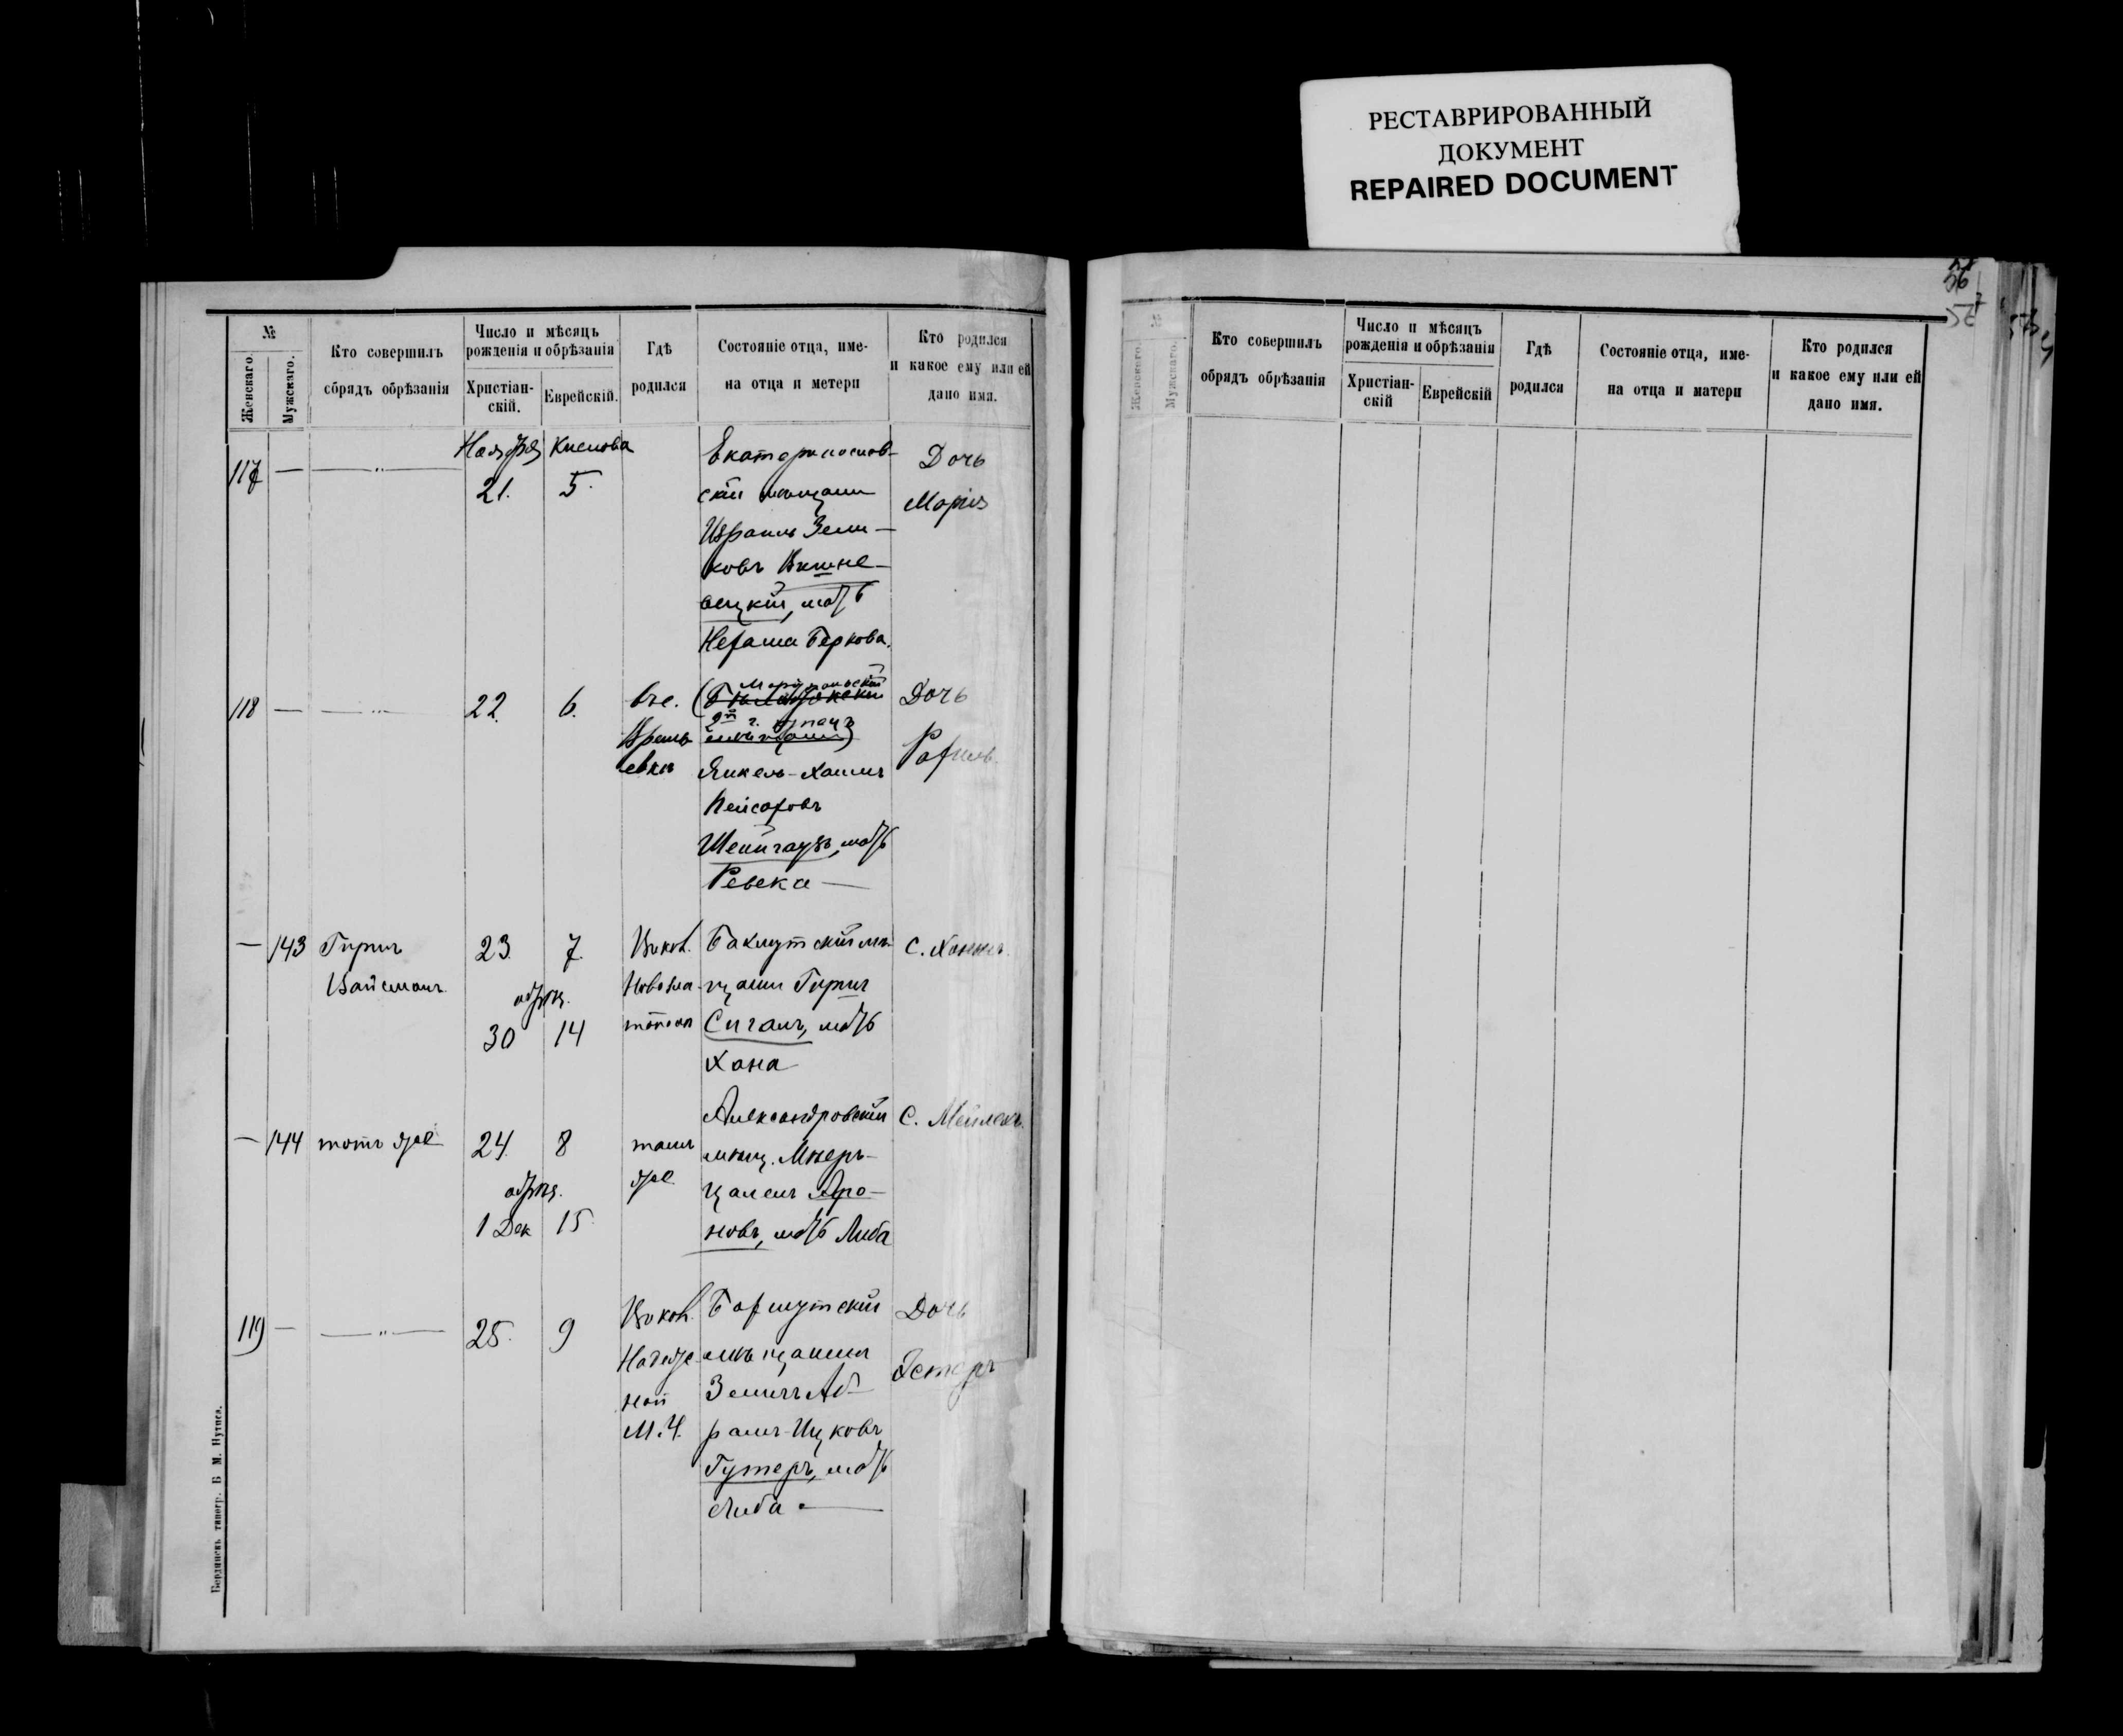 РЕСТАВРИРОВАННЫЙ
ДОКУМЕНТ
REPAIRED DOCUMENT
56
№
Женскаго.
Мужскаго.
Кто совершилъ
обрядъ обрѣзанія
Число и мѣсяцъ
рожденія и обрѣзанія
Христіан-
скій.
Еврейскій.
Гдѣ
родился
Состояніе отца, име-
на отца и метери
Кто родился
и какое ему или ей
дано имя.
117 — — " —
Ноября Кислова
21. 5.
Екатеринослав-
скій мещанин
Израиль Зели-
ковъ Вишне-
вецкій, мать
Нехама Беркова.
Дочь
Марія
118 — — " —
22. 6.
(Маріупольскій
2й г. купецъ
Янкель-Хаимъ
Пейсаховъ
Шейнгаузъ, мать
Ревека —
Дочь
Рахиль
— 143 Гирш
Вайсманъ
23. 7.
обрѣз.
30 14
Бахмутскій мѣ-
щанин Гирш
Сигалъ, мать
Хана
— 144 тотъ же
24. 8
обрѣз.
1 Дек 15
тамъ
же
Александровскій
мѣщ.
Аро-
новъ, мать Либа
С. Мейлехъ.
119 — — " —
25. 9
Бахмутскій
мѣщанин
Зелигъ Аб-
рамъ-Ицковъ
Гутеръ, мать
Либа —
Дочь
Эстеръ
Бердянскъ типогр. Б М. Нутиса.
№
Женскаго.
Мужскаго.
Кто совершилъ
обрядъ обрѣзанія
Число и мѣсяцъ
рожденія и обрѣзанія
Христіан-
скій
Еврейскій
Гдѣ
родился
Состояніе отца, име-
на отца и матери
Кто родился
и какое ему или ей
дано имя.